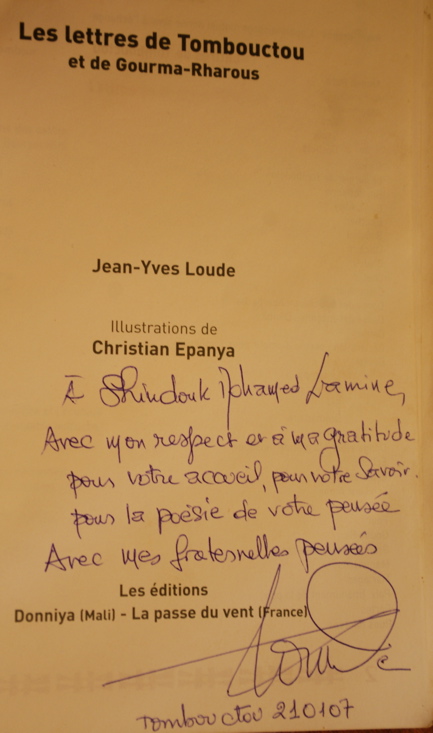 Les lettres de Tombouctou
et de Gourma-Rharous
Jean-Yves Loude
Illustrations de
Christian Epanya
À Shindouk Mohamed Lamine,
Avec mon respect et à ma gratitude
pour votre accueil, pour votre savoir.
pour la poésie de votre pensée
Avec mes fraternelles pensées
Les éditions
Donniya (Mali) - La passe du vent (France)
Tombouctou 210107